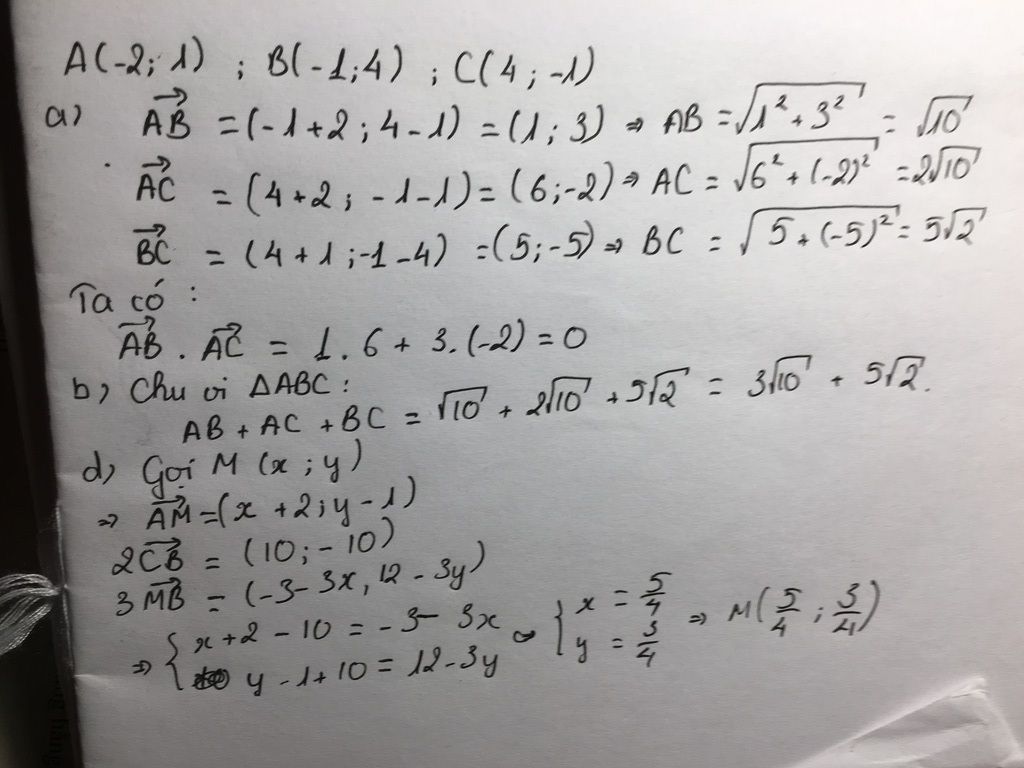 A(-2; 1) ; B(-1;4) ; C(4; -1)
a) \overrightarrow{AB} = (-1+2; 4-1) = (1; 3) ⇒ AB = √(1² + 3²) = √10
\overrightarrow{AC} = (4+2; -1-1) = (6;-2) ⇒ AC = √(6² + (-2)²) = 2√10
\overrightarrow{BC} = (4+1;-1-4) = (5;-5) ⇒ BC = √(5 + (-5)²) = 5√2
Ta có :
\overrightarrow{AB} . \overrightarrow{AC} = 1. 6 + 3.(-2) = 0
b) Chu vi ΔABC :
AB + AC + BC = √10 + 2√10 + 5√2 = 3√10 + 5√2.
d) Gọi M (x; y)
⇒ \overrightarrow{AM} = (x+2; y-1)
2\overrightarrow{CB} = (10; -10)
3\overrightarrow{MB} = (-3-3x, 12-3y)
⇒ { x+2-10 = -3-3x ⇔ { x = 5/4 ⇒ M(5/4 ; 3/4)
y-1+10 = 12-3y y = 3/4